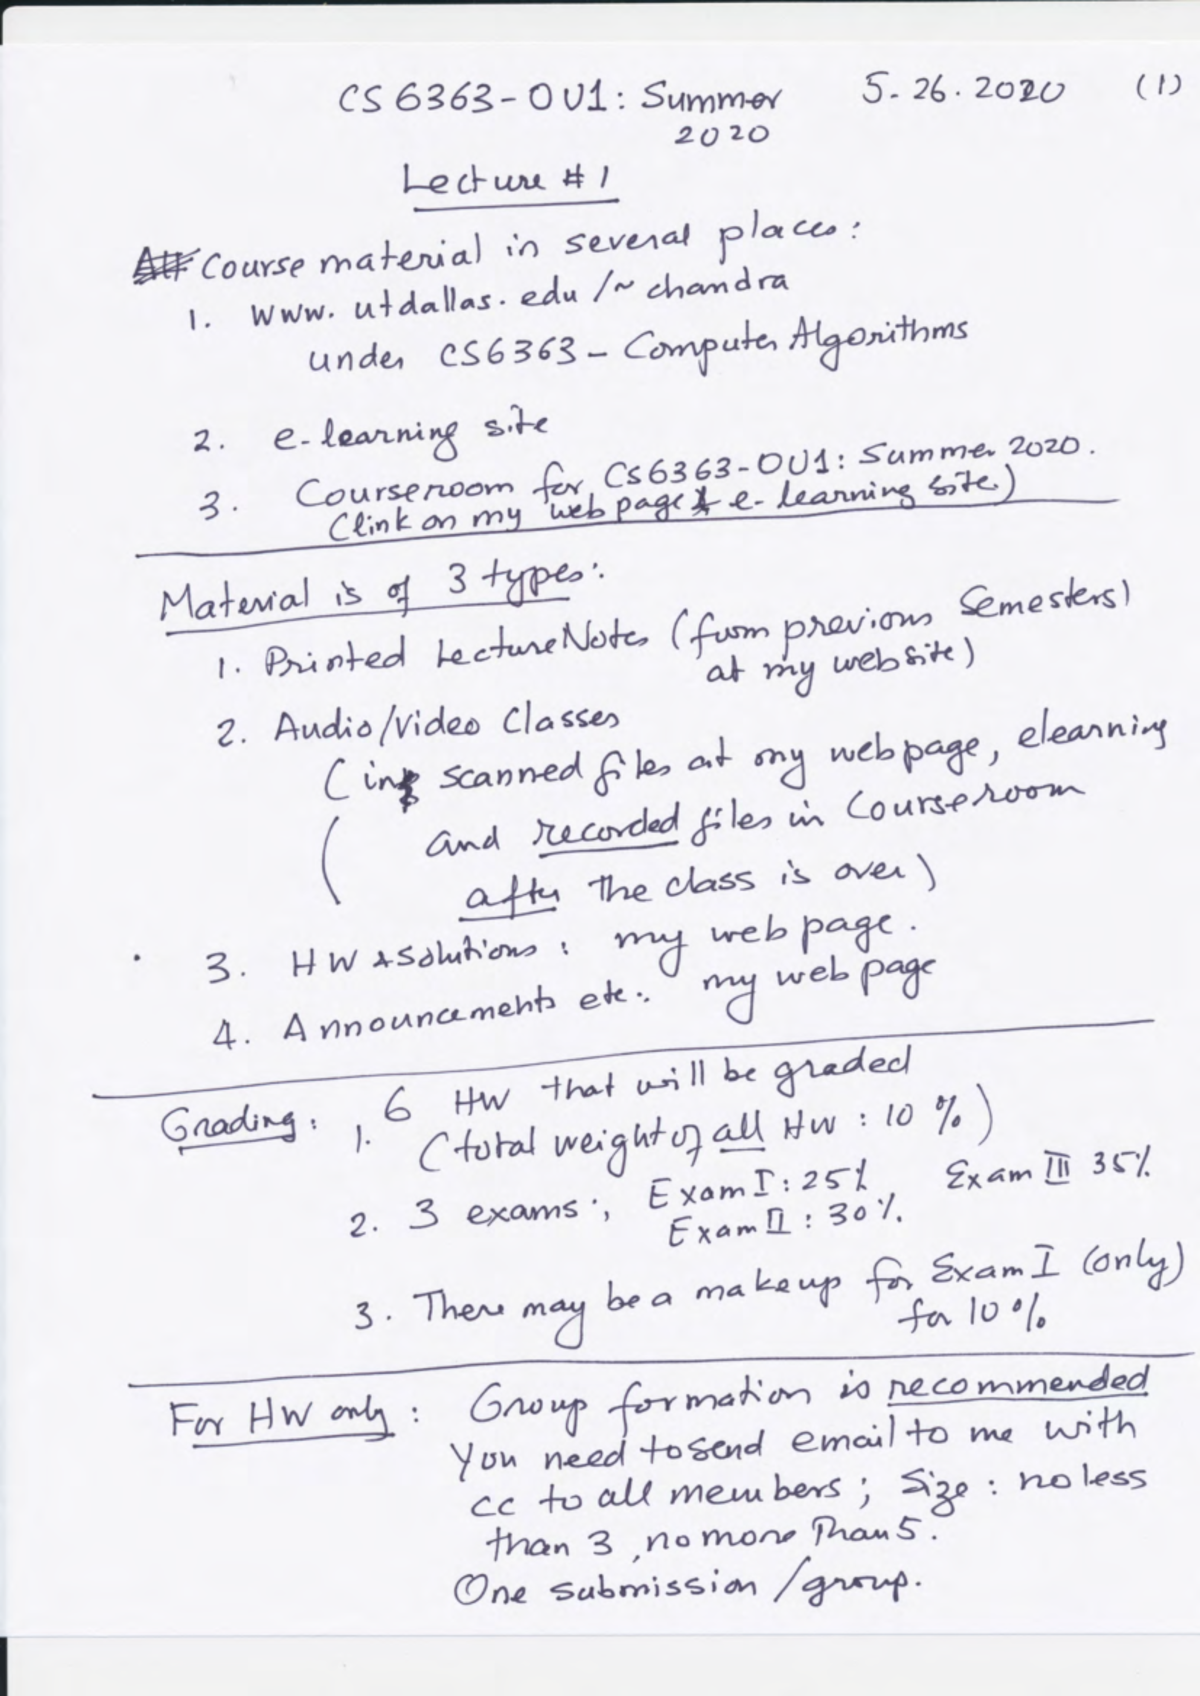 CS 6363-0U1: Summer 5.26.2020 (1)
2020
Lecture # 1
Course material in several places:
1. www.utdallas.edu/~chandra
under CS6363 - Computer Algorithms
2. e-learning site
3. Courseroom for CS6363-0U1: Summer 2020.
(link on my web page & e-learning site)
Material is of 3 types:
1. Printed Lecture Notes (from previous Semesters)
at my website)
2. Audio/Video Classes
(in scanned files at my webpage, elearning
( and recorded files in Courseroom
after the class is over)
3. HW & Solutions: my web page.
4. Announcements etc.: my web page
Grading: 1. 6 HW that will be graded
(total weight of all HW : 10 %)
2. 3 exams:, Exam I: 25% Exam III 35%
Exam II : 30%.
3. There may be a makeup for Exam I (only)
for 10%
For HW only: Group formation is recommended
You need to send email to me with
cc to all members; Size: no less
than 3, no more than 5.
One submission/group.